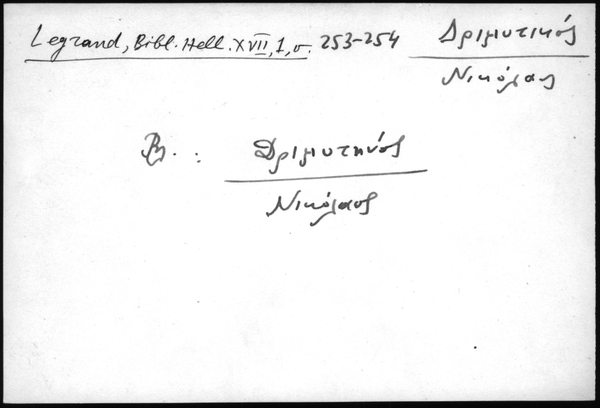 Legrand, Bibl. Hell. XVII, 1, σ. 253-254
Δριμυτικός
Νικόλαος
Βλ. :
Δριμυτινός
Νικόλαος